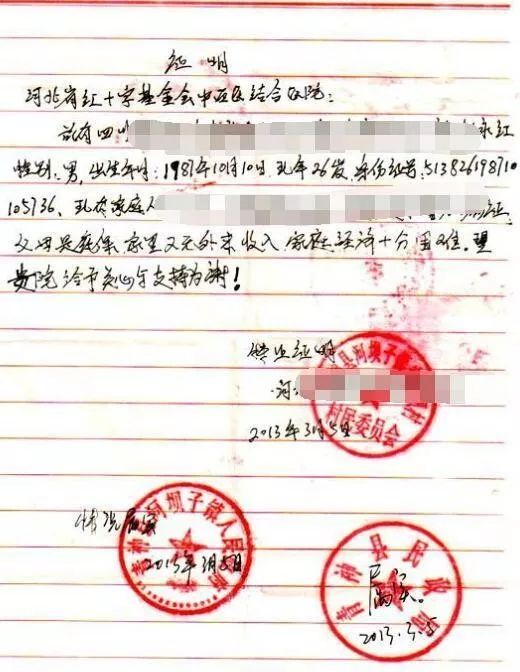 证明
河北省红十字基金会中西医结合医院:
兹有四川
永红
性别:男,出生年月:1987年10月10日,现年26岁,身份证号:513826198710
105736,现在家庭人
父母是農保,家里又无外来收入,家庭经济十分困难。望
贵院给予关心与支持为谢!
特此证明
河
2013年3月5日
县河坝子镇
村民委员会
情况属实
青神 河坝子镇人民
2013年3月5日
青神县民政局
属实。
2013.3.5